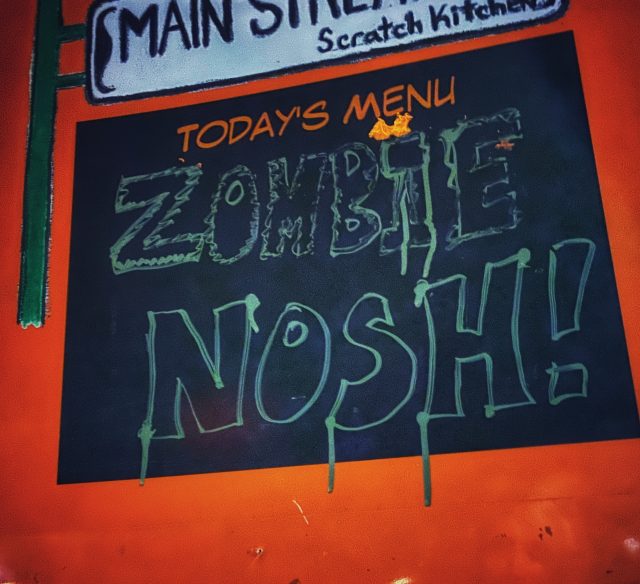 MAIN
Scratch Kitchen
TODAY'S MENU
ZOMBIE
NOSH!